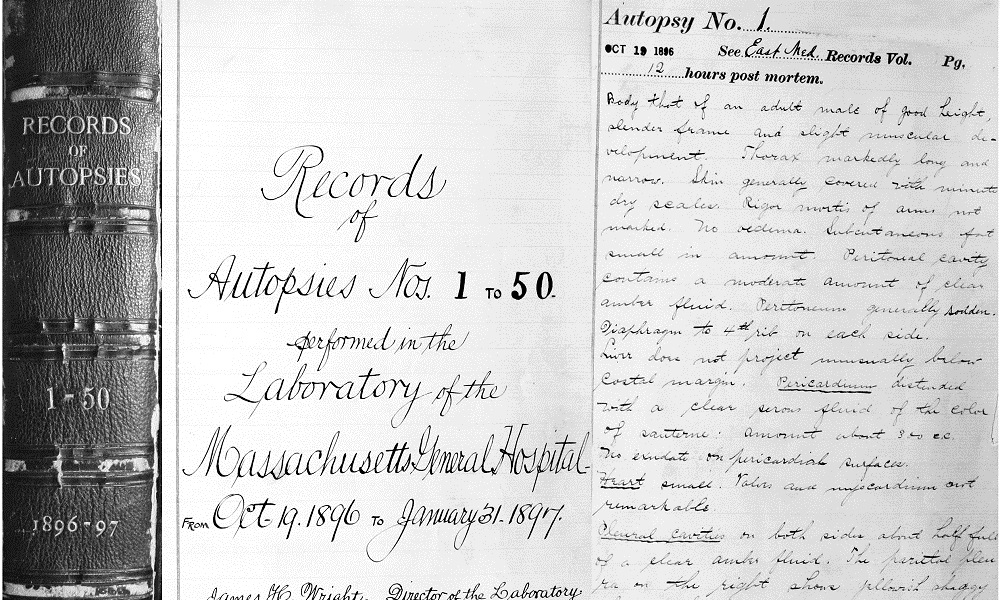 RECORDS
OF
AUTOPSIES
1-50
1896-97
Records
of
Autopsies Nos. 1 TO 50.
performed in the
Laboratory of the
Massachusetts General Hospital
FROM Oct 19. 1896 TO January 31. 1897.
James H. Wright, Director of the Laboratory
Autopsy No. 1.
OCT 19 1896 See East Med. Records Vol. Pg.
12 hours post mortem.
Body that of an adult male of good height,
slender frame and slight muscular de-
velopment. Thorax markedly long and
narrow. Skin generally covered with minute
dry scales. Rigor mortis of arms not
marked. No oedema. Subcutaneous fat
small in amount. Peritoneal cavity
contains a moderate amount of clear
amber fluid. Peritoneum generally sodden.
Diaphragm to 4th rib on each side.
Liver does not project unusually below
costal margin. Pericardium distended
with a clear serous fluid of the color
of sauterne: amount about 300 c.c.
No exudat on pericardial surfaces.
Heart small. Valvs and myocardium not
remarkable.
Pleural cavities on both sides about half full
of a clear amber fluid. The parietal pleu
ra on the right shows yellowish shaggy